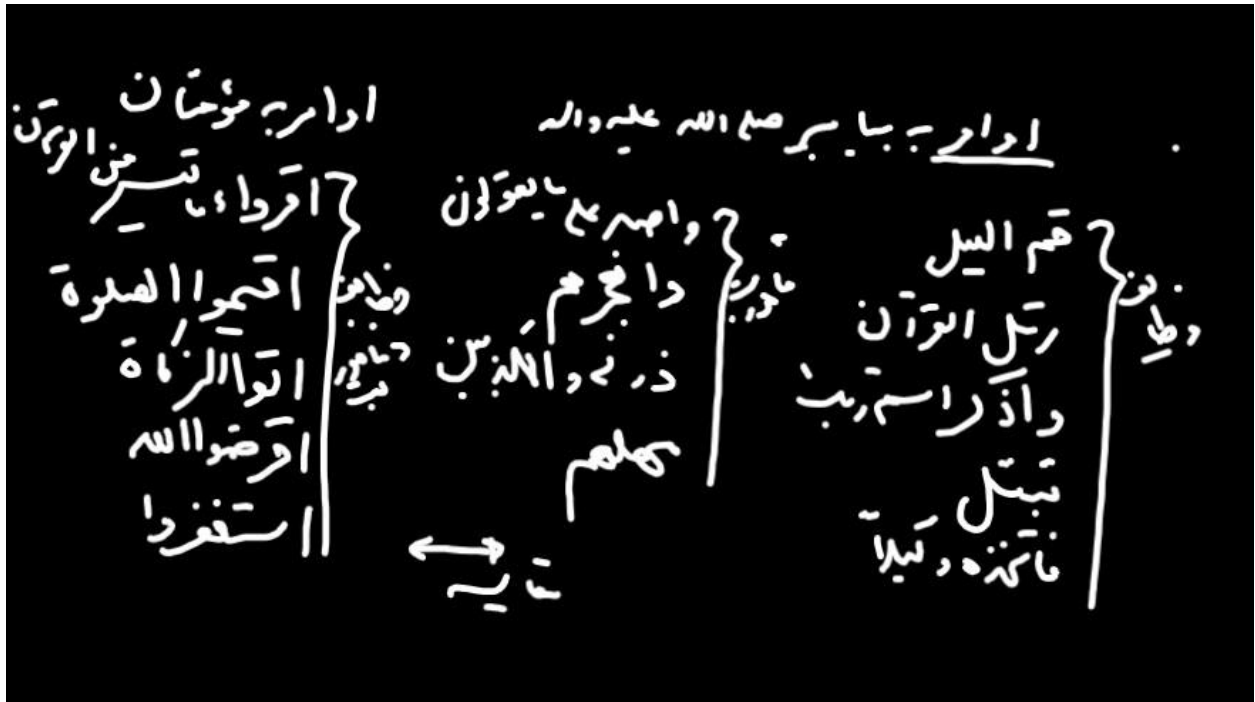 اوامر به پیامبر صلی الله علیه واله
وظایف
قم اللیل
رتل القرآن
واذکر اسم ربک
تبتل
فاتخذه وکیلاً
واصبر علی ما یقولون
واهجرهم
ذرنی والمکذبین
مهلهم
مقایسه
اوامر به مؤمنان
وظایف
اقرواء ما تیسر من القرآن
اقیموا الصلوة
اتوا الزکاة
اقرضوا الله
استغفروا